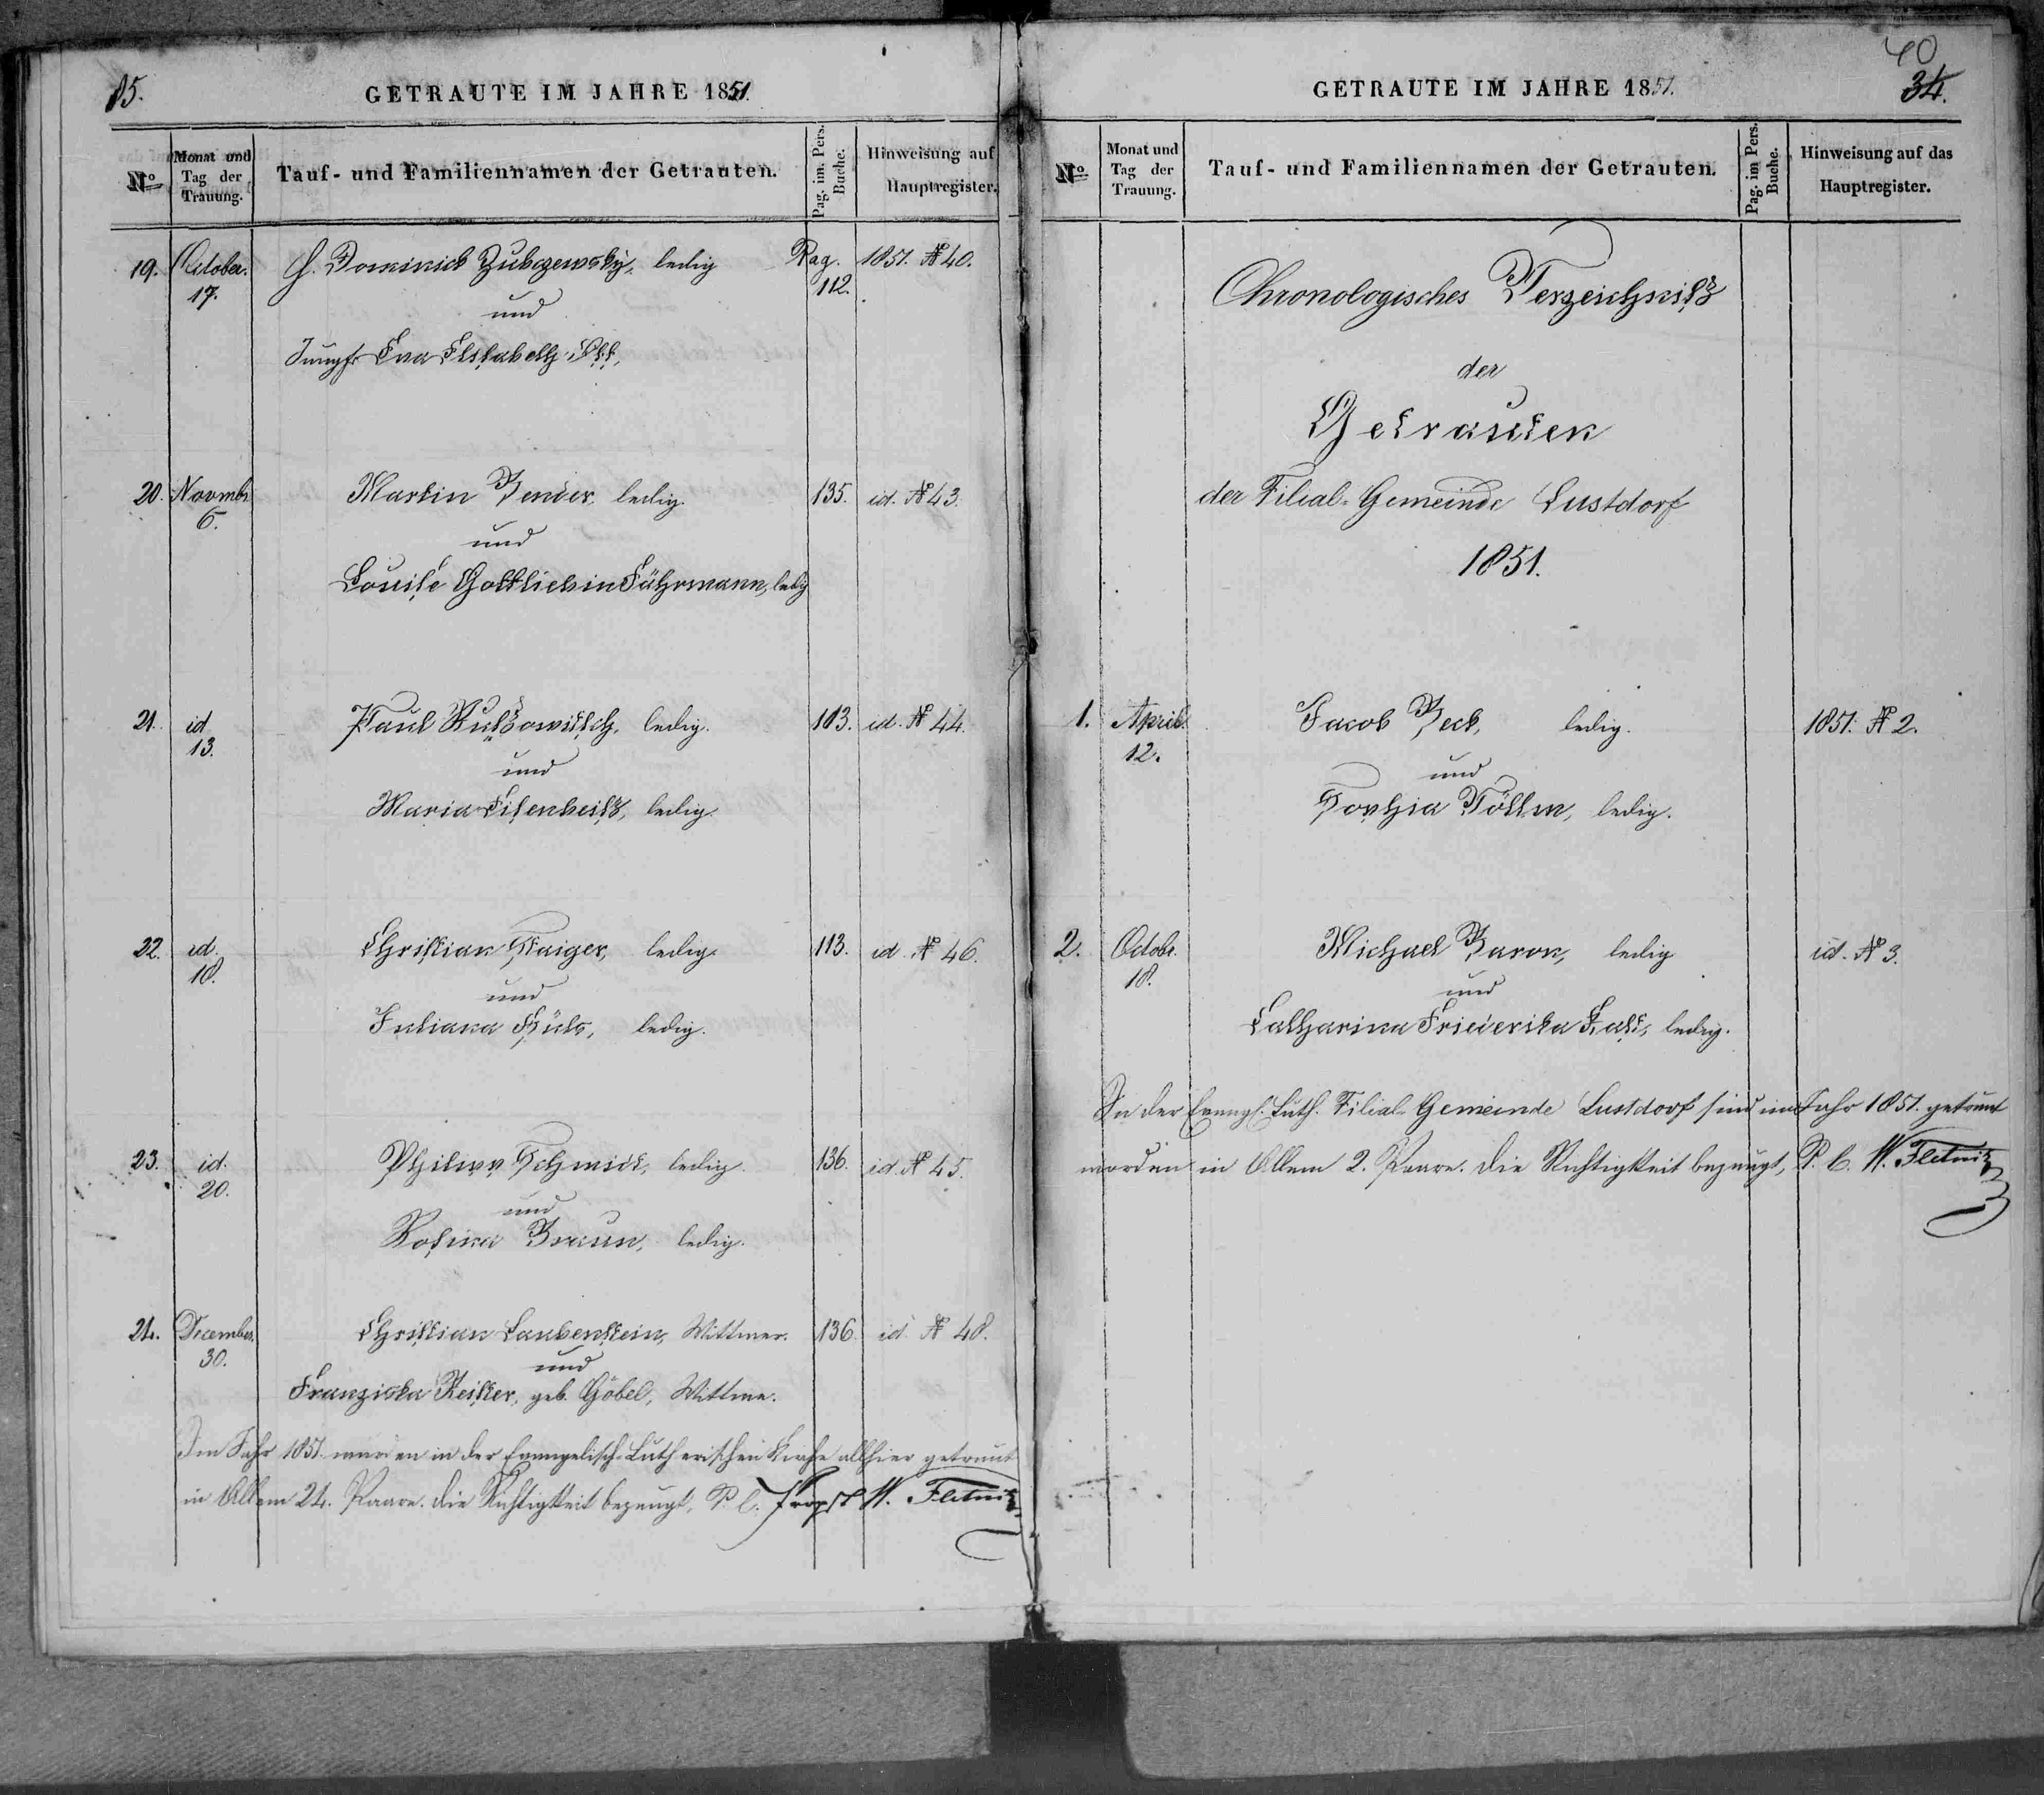 85.
GETRAUTE IM JAHRE 1851.
No
Monat und Tag der Trauung.
Tauf- und Familiennamen der Getrauten.
Pag. im Pers. Buche.
Hinweisung auf Hauptregister.
19. October. H. Dominick Zubczewsky, ledig Pag. 1851. № 40.
17. 112.
und
Jungfr. Eva Elisabeth Ott,
20. Novmbr Martin Bender, ledig. 135. id. № 43.
6.
und
Louise Gottliebin Fuhrmann, ledig
21. id Paul ledig. 113. id. № 44.
13.
und
Maria Eisenbeiß, ledig.
22. id. Christian Staiger, ledig. 113. id. № 46.
18.
und
Juliana ledig.
23. id. Philipp Schmidt, ledig. 136. id. № 45.
20.
und
Rosina Braun, ledig.
24. December. Christian Laubenstein, Wittwer. 136. id. № 48.
30.
und
Franziska geb. Göbel, Wittwe.
Im Jahr 1851. wurden in der Evangelisch-Lutherischen Kirche allhier getraut
in Allem 24. Paare. Die Richtigkeit bezeugt, P. l. Propst W. Fletnitz
40
34.
GETRAUTE IM JAHRE 1851.
No
Monat und Tag der Trauung.
Tauf- und Familiennamen der Getrauten.
Pag. im Pers. Buche.
Hinweisung auf das Hauptregister.
Chronologisches Verzeichniß
der
Getrauten
der Filial-Gemeinde Lustdorf
1851.
1. April Jacob Beck, ledig. 1851. № 2.
12.
und
Sophia ledig.
2. Octobr. Michael Baron, ledig id. № 3.
18.
und
Catharina Friederika ledig.
In der Evangl. Luth. Filial-Gemeinde Lustdorf sind im Jahr 1851. getraut
worden in Allem 2. Paare. Die Richtigkeit bezeugt, P. l. W. Fletnitz